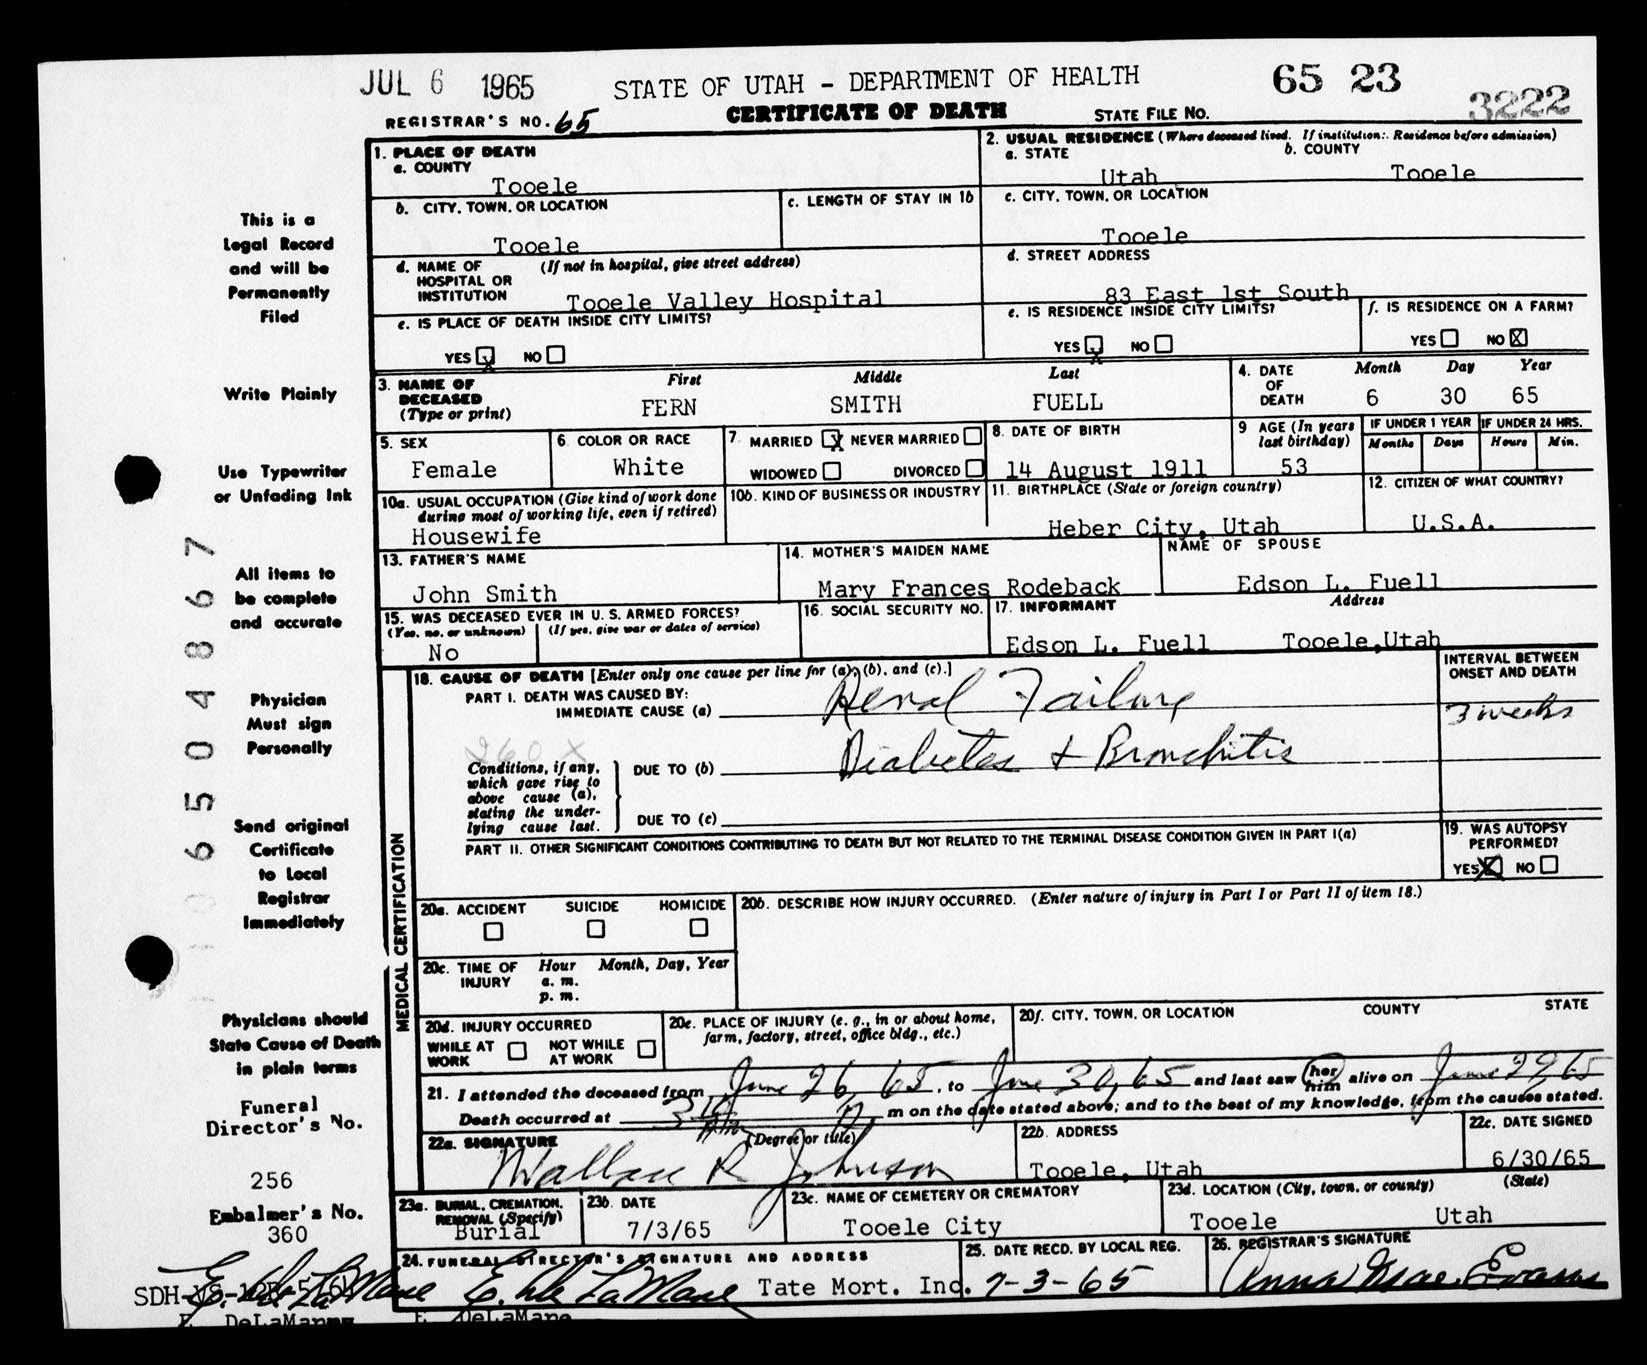 JUL 6 1965 STATE OF UTAH - DEPARTMENT OF HEALTH 65 23 3222
REGISTRAR'S NO. 65 CERTIFICATE OF DEATH STATE FILE NO.
1. PLACE OF DEATH
a. COUNTY
Tooele
2. USUAL RESIDENCE (Where deceased lived. If institution: Residence before admission)
a. STATE b. COUNTY
Utah Tooele
b. CITY, TOWN, OR LOCATION
Tooele
c. LENGTH OF STAY IN 1b
c. CITY, TOWN, OR LOCATION
Tooele
d. NAME OF HOSPITAL OR INSTITUTION (If not in hospital, give street address)
Tooele Valley Hospital
d. STREET ADDRESS
83 East 1st South
e. IS PLACE OF DEATH INSIDE CITY LIMITS?
YES X NO
e. IS RESIDENCE INSIDE CITY LIMITS?
YES X NO
f. IS RESIDENCE ON A FARM?
YES NO X
3. NAME OF DECEASED (Type or print)
First Middle Last
FERN SMITH FUELL
4. DATE OF DEATH
Month Day Year
6 30 65
5. SEX
Female
6. COLOR OR RACE
White
7. MARRIED X NEVER MARRIED
WIDOWED DIVORCED
8. DATE OF BIRTH
14 August 1911
9 AGE (In years last birthday)
53
IF UNDER 1 YEAR
Months Days
IF UNDER 24 HRS.
Hours Min.
10a. USUAL OCCUPATION (Give kind of work done during most of working life, even if retired)
Housewife
10b. KIND OF BUSINESS OR INDUSTRY
11. BIRTHPLACE (State or foreign country)
Heber City, Utah
12. CITIZEN OF WHAT COUNTRY?
U.S.A.
13. FATHER'S NAME
John Smith
14. MOTHER'S MAIDEN NAME
Mary Frances Rodeback
NAME OF SPOUSE
Edson L. Fuell
15. WAS DECEASED EVER IN U. S. ARMED FORCES?
(Yes, no, or unknown) (If yes, give war or dates of service)
No
16. SOCIAL SECURITY NO.
17. INFORMANT Address
Edson L. Fuell Tooele,Utah
MEDICAL CERTIFICATION
18. CAUSE OF DEATH [Enter only one cause per line for (a), (b), and (c).]
INTERVAL BETWEEN ONSET AND DEATH
PART I. DEATH WAS CAUSED BY:
IMMEDIATE CAUSE (a) Renal Failure 3 weeks
260 X
Conditions, if any, which gave rise to above cause (a), stating the underlying cause last.
DUE TO (b) Diabetes + Bronchitis
DUE TO (c)
PART II. OTHER SIGNIFICANT CONDITIONS CONTRIBUTING TO DEATH BUT NOT RELATED TO THE TERMINAL DISEASE CONDITION GIVEN IN PART I(a)
19. WAS AUTOPSY PERFORMED?
YES X NO
20a. ACCIDENT SUICIDE HOMICIDE
20b. DESCRIBE HOW INJURY OCCURRED. (Enter nature of injury in Part I or Part II of item 18.)
20c. TIME OF INJURY Hour Month, Day, Year
a. m.
p. m.
20d. INJURY OCCURRED
WHILE AT WORK NOT WHILE AT WORK
20e. PLACE OF INJURY (e. g., in or about home, farm, factory, street, office bldg., etc.)
20f. CITY, TOWN, OR LOCATION COUNTY STATE
21. I attended the deceased from June 26, 65, to June 30, 65 and last saw her him alive on June 29 65
Death occurred at m on the date stated above; and to the best of my knowledge, from the causes stated.
22a. SIGNATURE (Degree or title)
Wallace R Johnson
22b. ADDRESS
Tooele, Utah
22c. DATE SIGNED
6/30/65
23a. BURIAL, CREMATION, REMOVAL (Specify)
Burial
23b. DATE
7/3/65
23c. NAME OF CEMETERY OR CREMATORY
Tooele City
23d. LOCATION (City, town, or county) (State)
Tooele Utah
24. FUNERAL DIRECTOR'S SIGNATURE AND ADDRESS
Tate Mort. Inc.
E. DeLaMare
25. DATE RECD. BY LOCAL REG.
7-3-65
26. REGISTRAR'S SIGNATURE
Anna Mae Evans
This is a
Legal Record
and will be
Permanently
Filed
Write Plainly
Use Typewriter
or Unfading Ink
All items to
be complete
and accurate
Physician
Must sign
Personally
Send original
Certificate
to Local
Registrar
Immediately
Physicians should
State Cause of Death
in plain terms
Funeral
Director's No.
256
Embalmer's No.
360
E. DeLaMare
6504867